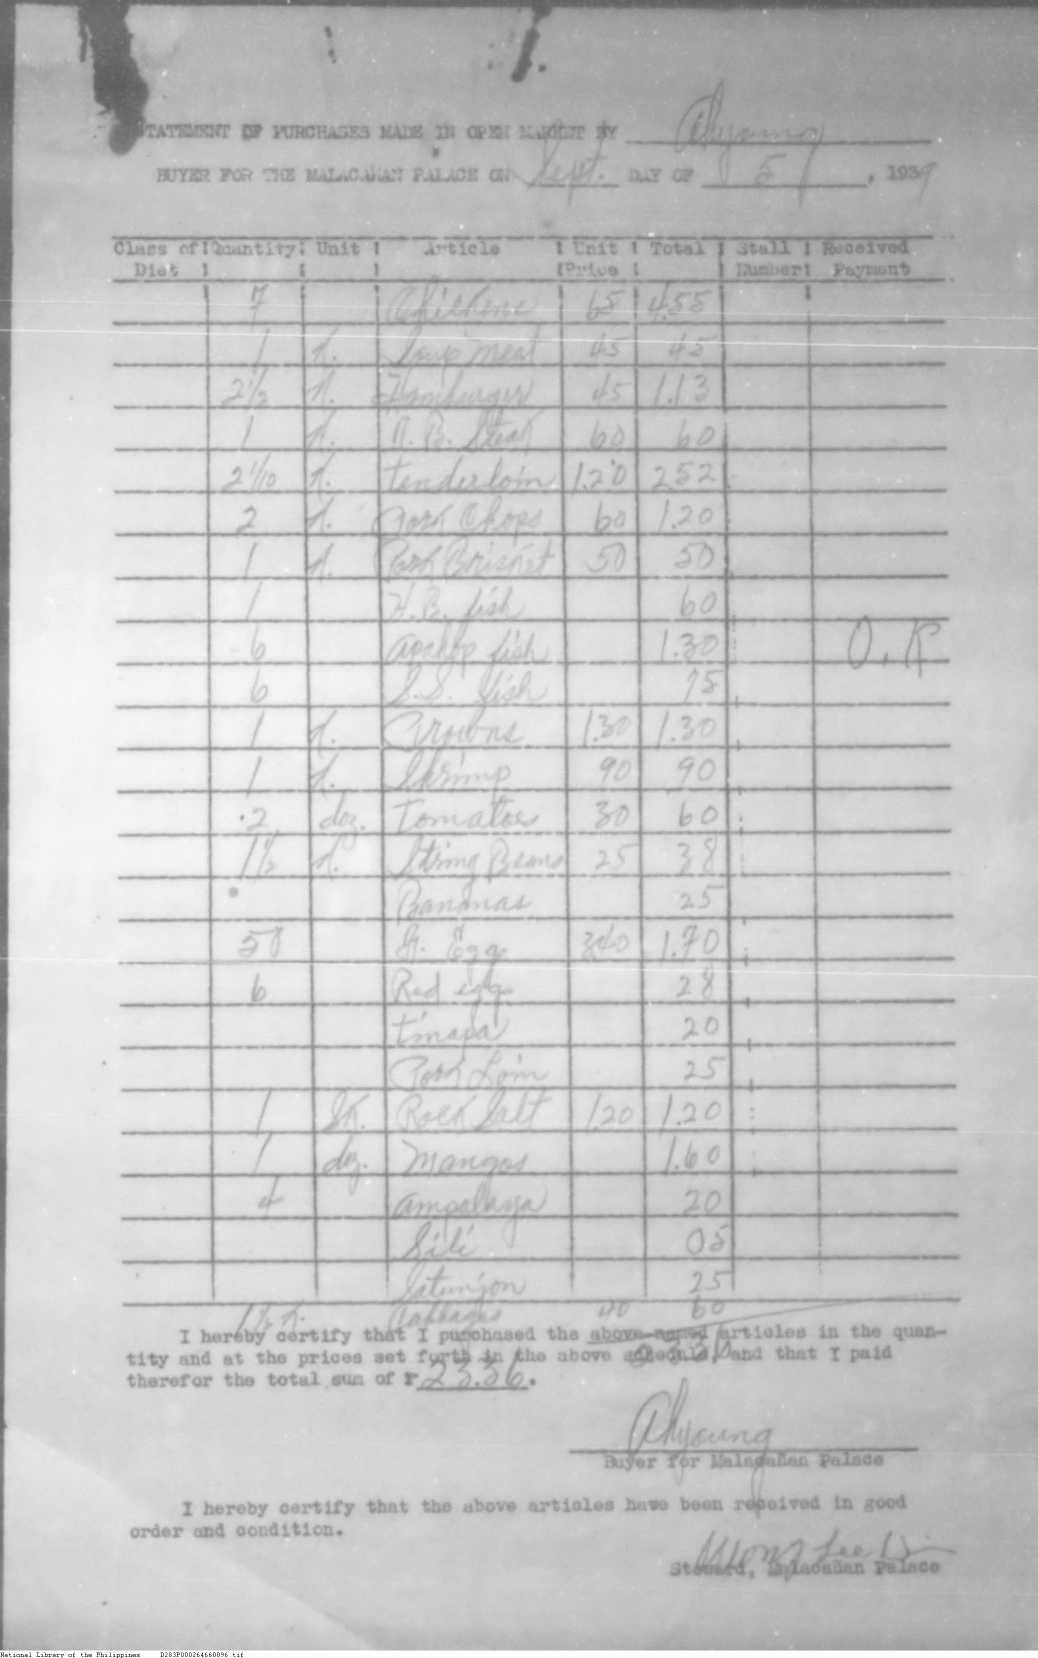 STATEMENT OF PURCHASES MADE IN OPEN MARKET BY Ahyoung
BUYER FOR THE MALACAÑAN PALACE ON Sept. DAY OF 5, 1939
Class of Diet Quantity Unit Article Unit Price Total Stall Number Received Payment
7 Chickens 65 4.55
1 K. Soup meat 45 45
2 1/2 K. Hamburger 45 1.13
1 K. N. B. Steak 60 60
2 1/10 K. tenderloin 1.20 2.52
2 K. Pork Chops 60 1.20
1 K. Pork Brisket 50 50
1 H. B. fish 60
6 apahap fish 1.30 O.K
6 S.S. fish 75
1 K. Prowns 1.30 1.30
1 K. Shrimp 90 90
2 doz. Tomatoes 30 60
1 1/2 K. String Beans 25 38
Bananas 25
50 Egg 3.40 1.70
6 Red eggs 28
tinapa 20
Pork Loin 25
1 SK. Rock Salt 1.20 1.20
1 doz. Mangos 1.60
4 ampalaya 20
Sili 05
25
1 1/2 K. Cabbages 40 60
I hereby certify that I purchased the above-named articles in the quan-
tity and at the prices set forth in the above schedule, and that I paid
therefor the total sum of ₱ 23.36.
Ahyoung
Buyer for Malacañan Palace
I hereby certify that the above articles have been received in good
order and condition.
Wong Lee
Steward, Malacañan Palace
National Library of the Philippines D283P000264660896.tif